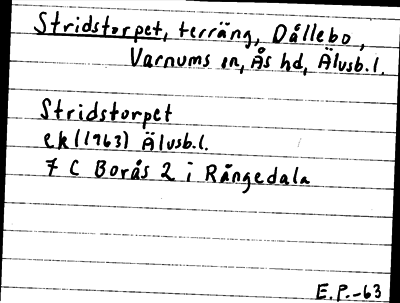 Stridstorpet, terräng, Dållebo,
Varnums sn, Ås hd, Älvsb.l.
Stridstorpet
ek (1963) Älvsb.l.
7 C Borås 2 i Rångedala
E.P.-63